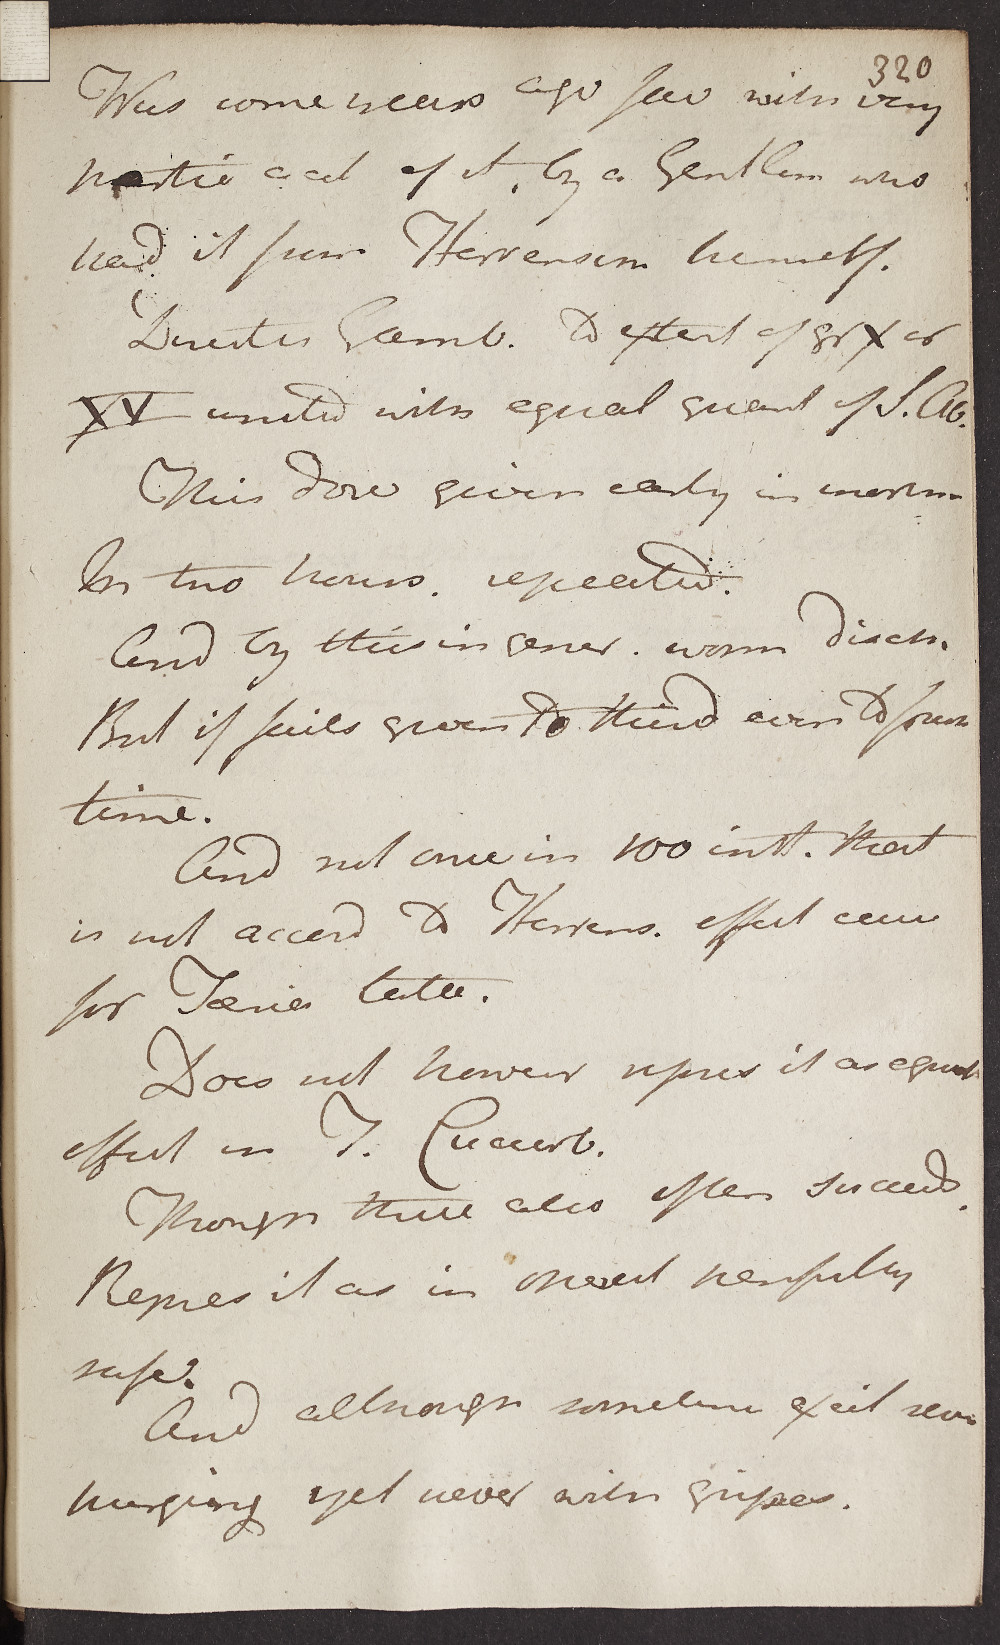 320
Was some years ago fav with very
partic acct of it, by a Gentlem who
had it from Herrensem himself.
Directs Gamb. to extent of gr X or
XV united with equal quant of S. Ab.
This dose given early in morn
In two hours. repeated.
And by this in gener. worm disch.
But if fails given to third even to four
time.
And not one in 100 inst. that
is not accord to Herrens. effect cure
for Tænia lata.
Does not however repres it as equal
effect in T. Cucurb.
Though there also often succeed.
Repres it as in one perfectly
safe.
And although sometime excit sev
purging yet never with gripes.